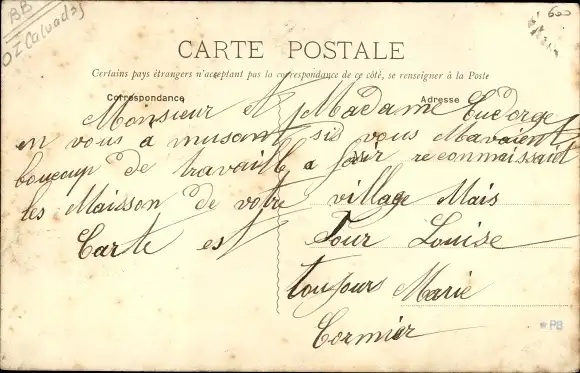 BB
OI Calvados
600
CARTE POSTALE
Certains pays étrangers n'acceptant pas la correspondance de ce côté, se renseigner à la Poste
Correspondance
Adresse
Monsieur et Madame Eudorge
en vous a musant sie vous Mavaient
boucoup de travaille a fair reconnaissant
les Maisson de votre village Mais
Carte est Pour Louise
toujours Marie
Cormier
PB